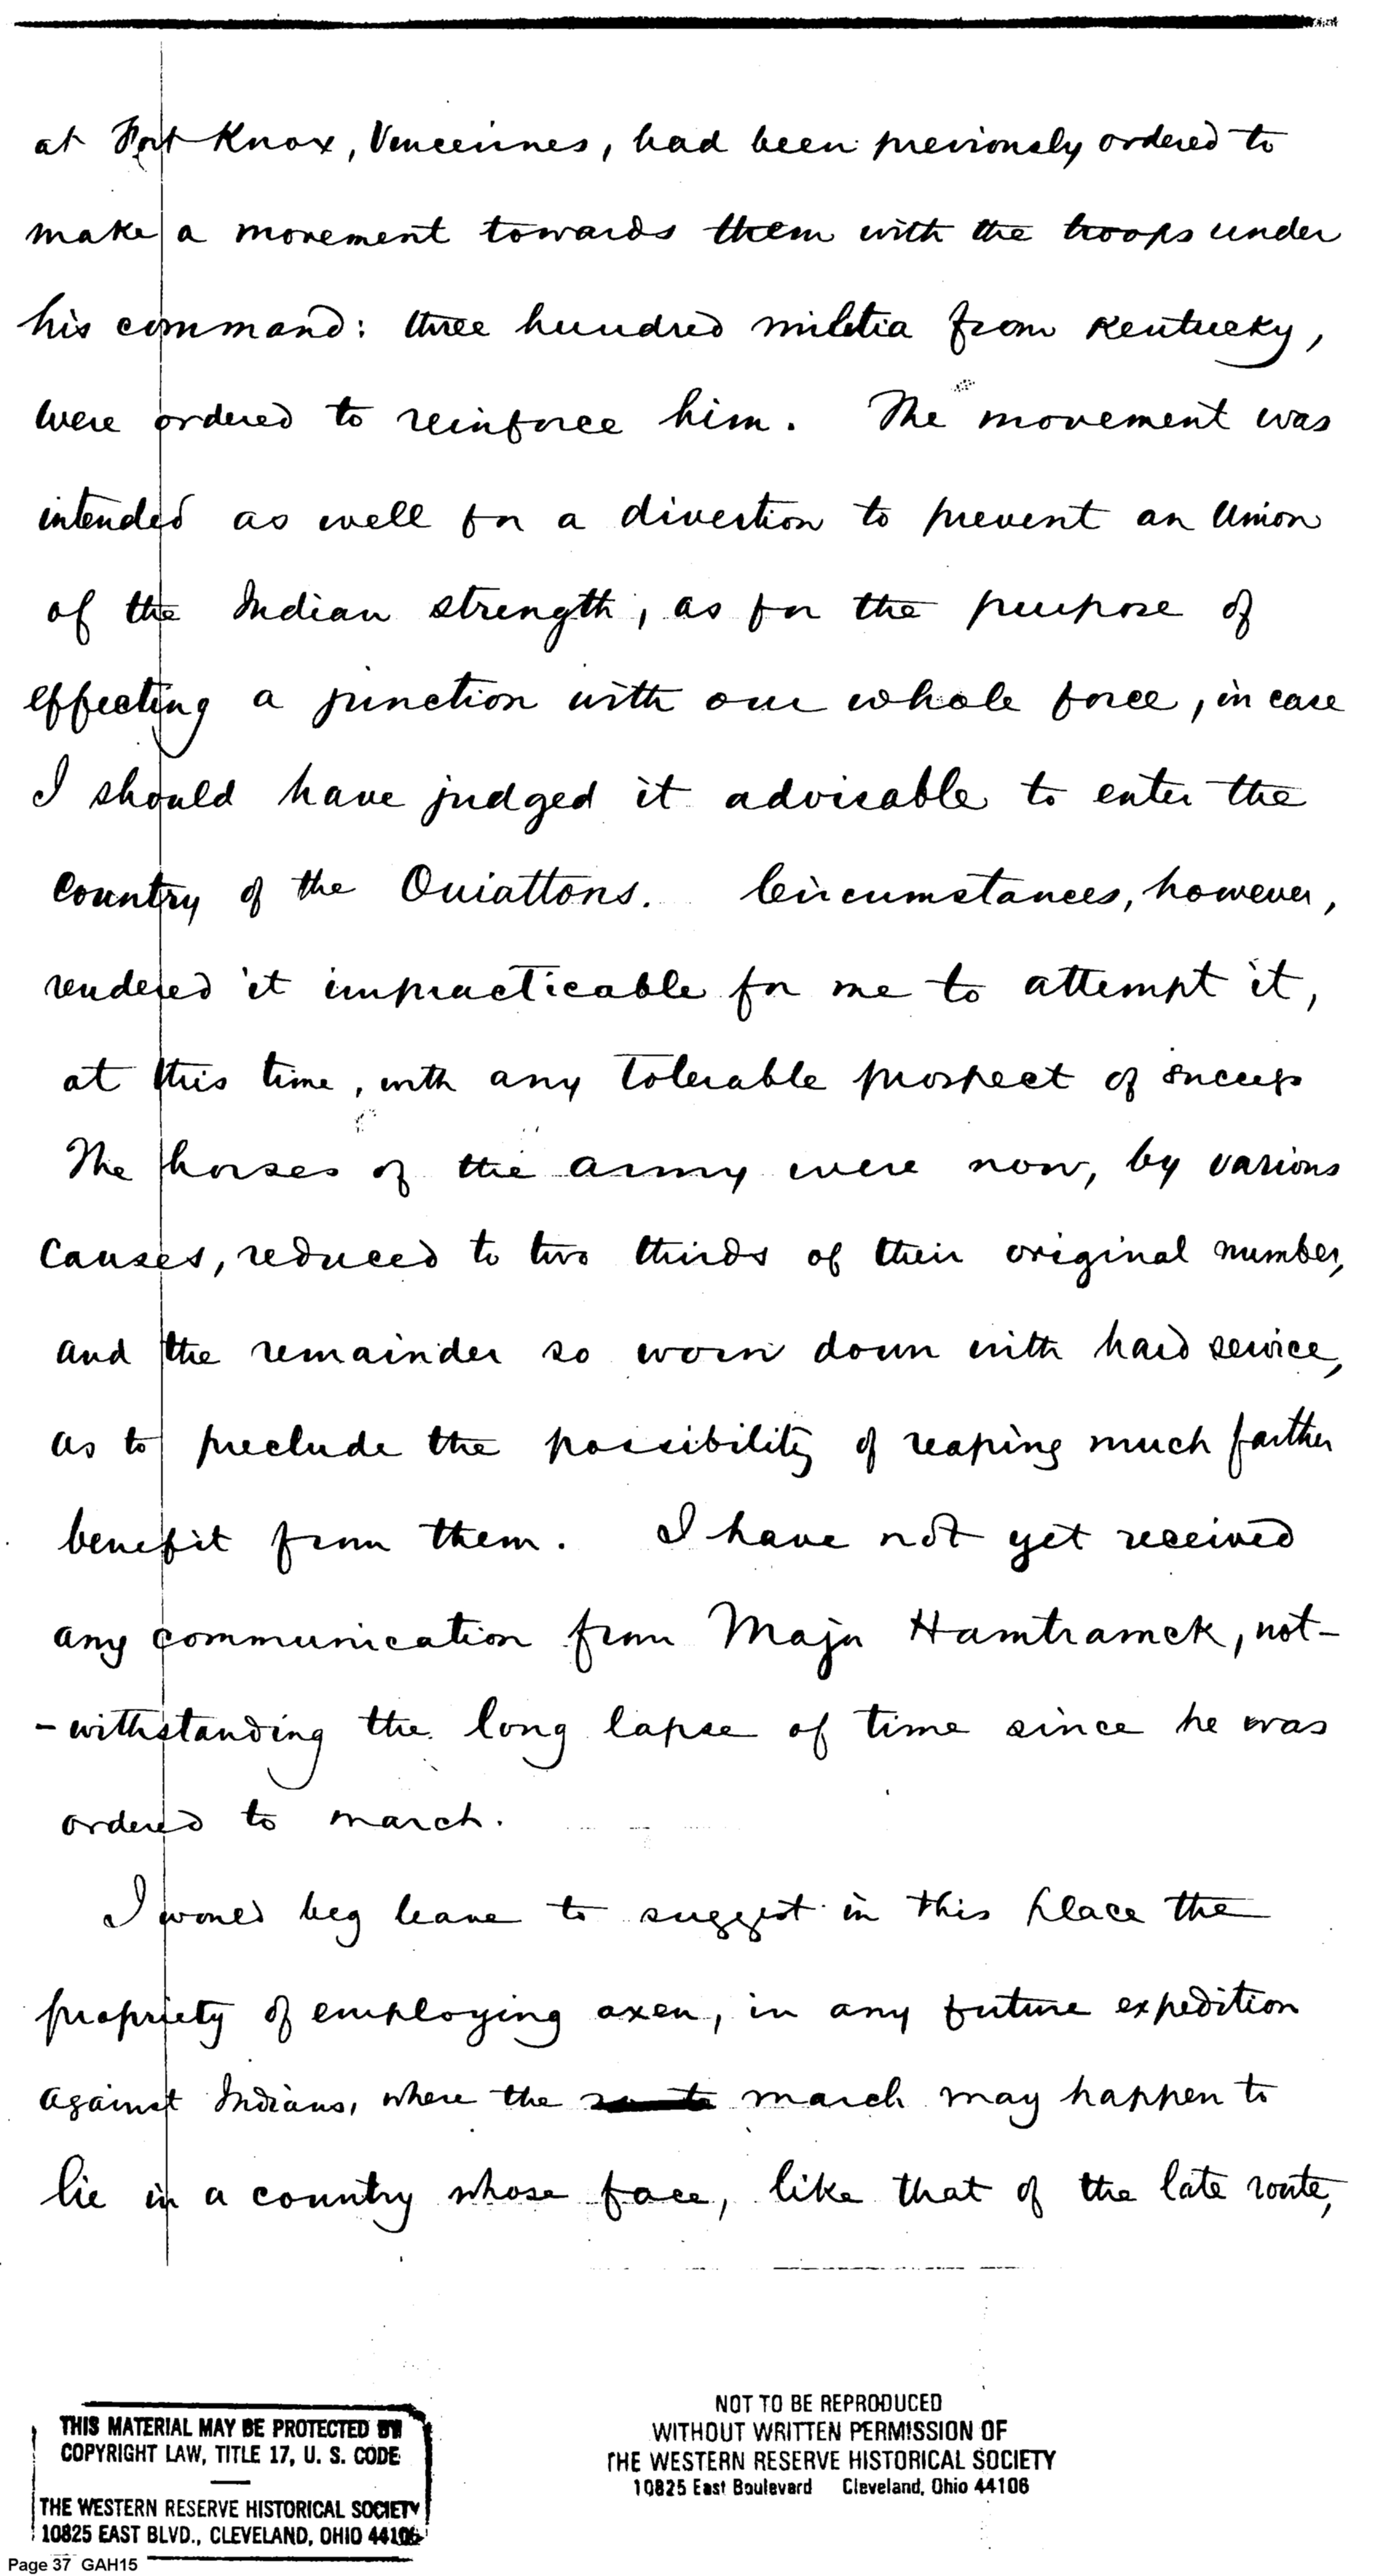 at Fort Knox, Venceinnes, had been previously ordered to
make a movement towards them with the troops under
his command: three hundred militia from Kentucky,
were ordered to reinforce him. The movement was
intended as well for a divertion to prevent an Union
of the Indian strength, as for the purpose of
effecting a junction with our whole force, in case
I should have judged it advisable to enter the
Country of the Ouiattons. Circumstances, however,
rendered it impracticable for me to attempt it,
at this time, with any tolerable prospect of success
The horses of the army were now, by various
Causes, reduced to two thirds of their original number,
and the remainder so worn down with hard service,
as to preclude the possibility of reaping much farther
benefit from them. I have not yet received
any communication from Major Hamtramck, not-
-withstanding the long lapse of time since he was
ordered to march.
I would beg leave to suggest in this place the
propriety of employing oxen, in any future expedition
against Indians, where the route march may happen to
lie in a country whose face, like that of the late route,
THIS MATERIAL MAY BE PROTECTED BY
COPYRIGHT LAW, TITLE 17, U. S. CODE
THE WESTERN RESERVE HISTORICAL SOCIETY
10825 EAST BLVD., CLEVELAND, OHIO 44106
NOT TO BE REPRODUCED
WITHOUT WRITTEN PERMISSION OF
THE WESTERN RESERVE HISTORICAL SOCIETY
10825 East Boulevard Cleveland, Ohio 44106
Page 37 GAH15